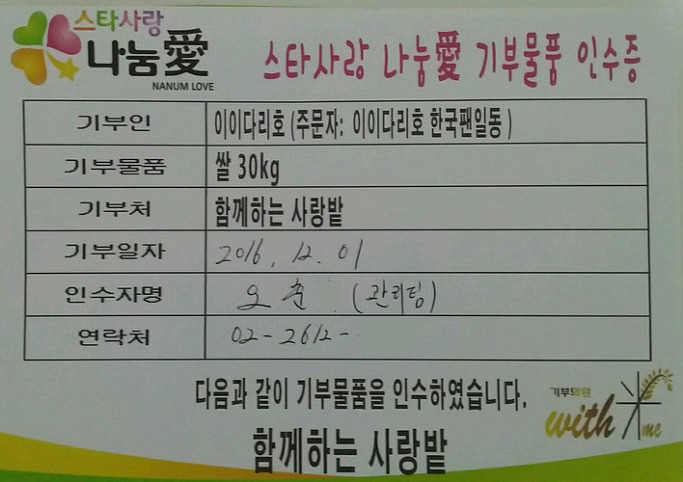 스타사랑
나눔愛
NANUM LOVE
스타사랑 나눔愛 기부물품 인수증
기부인 이이다리호 (주문자: 이이다리호 한국팬일동)
기부물품 쌀 30kg
기부처 함께하는 사랑밭
기부일자 2016. 12. 01
인수자명 오준 (관리팀)
연락처 02-2612-
다음과 같이 기부물품을 인수하였습니다.
기부의원
with me
함께하는 사랑밭